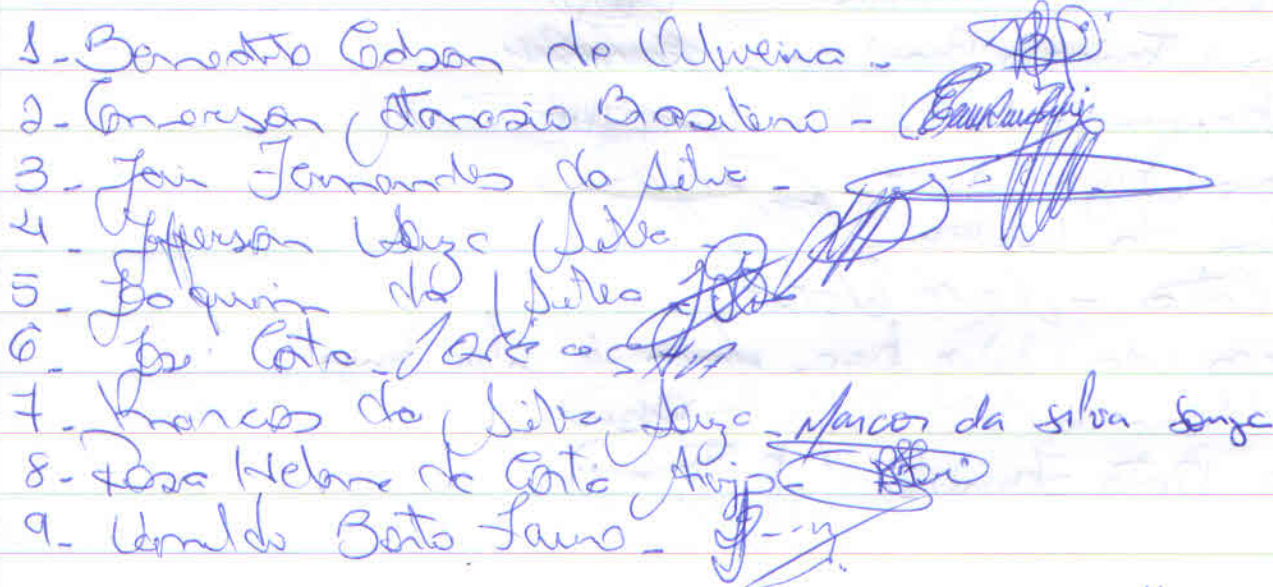 1- Benedito Edson de Oliveira -
2- Emerson Atanasio Brasileiro -
3- Jair Fernandes da Silva -
4- Jefferson Souza Silva -
5- Joaquim da Silva
6- José Costa - José Costa
7- Marcos da Silva Souza - Marcos da silva souza
8- Rosa Helena da Costa Araujo -
9- Bento -